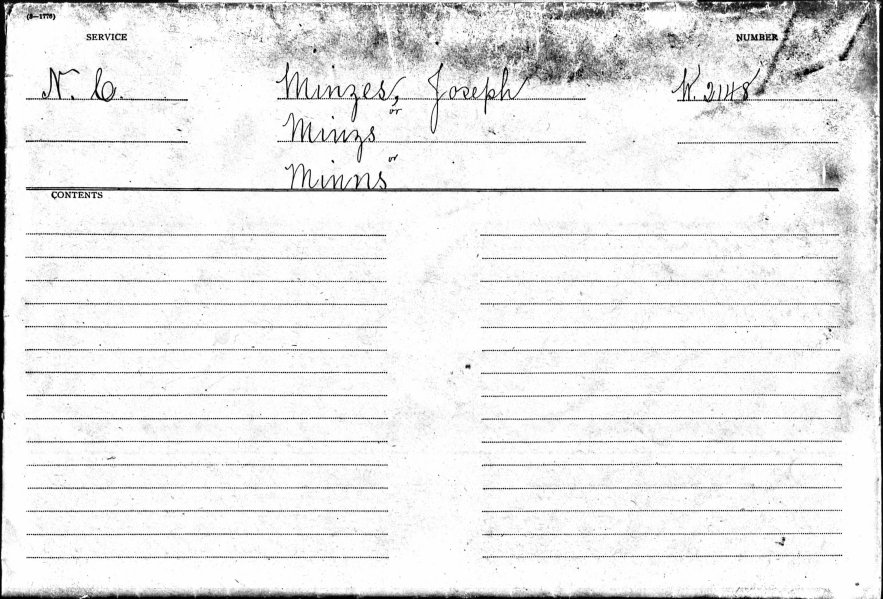 (3—1776)
SERVICE NUMBER
N. C. Minzes, Joseph W. 2148
or
Minzs
or
Minns
CONTENTS